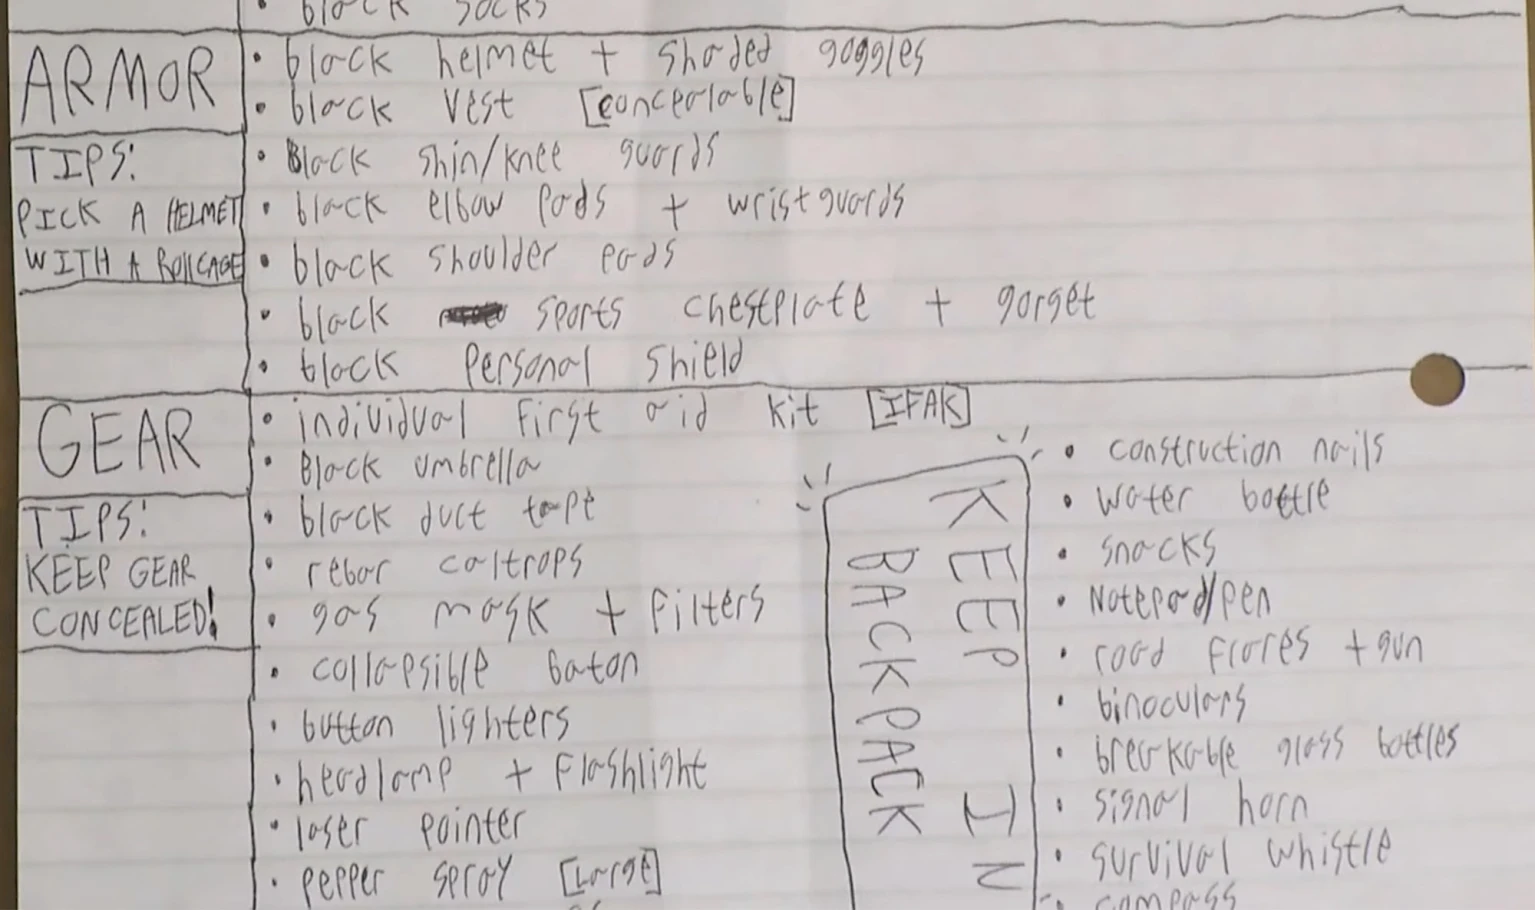 • black socks
ARMOR
TIPS:
PICK A HELMET
WITH A ROLLCAGE
• black helmet + shaded goggles
• black vest [concealable]
• Black shin/knee guards
• black elbow pads + wristguards
• black shoulder pads
• black sports chestplate + gorget
• black personal shield
GEAR
TIPS:
KEEP GEAR
CONCEALED!
• individual first aid kit [IFAK]
• Black umbrella
• black duct tape
• rebar caltrops
• gas mask + filters
• collapsible baton
• button lighters
• headlamp + flashlight
• laser pointer
• pepper spray [large]
KEEP IN
BACKPACK
• construction nails
• water bottle
• snacks
• Notepad/pen
• road flares + gun
• binoculars
• breakable glass bottles
• signal horn
• survival whistle
• compass